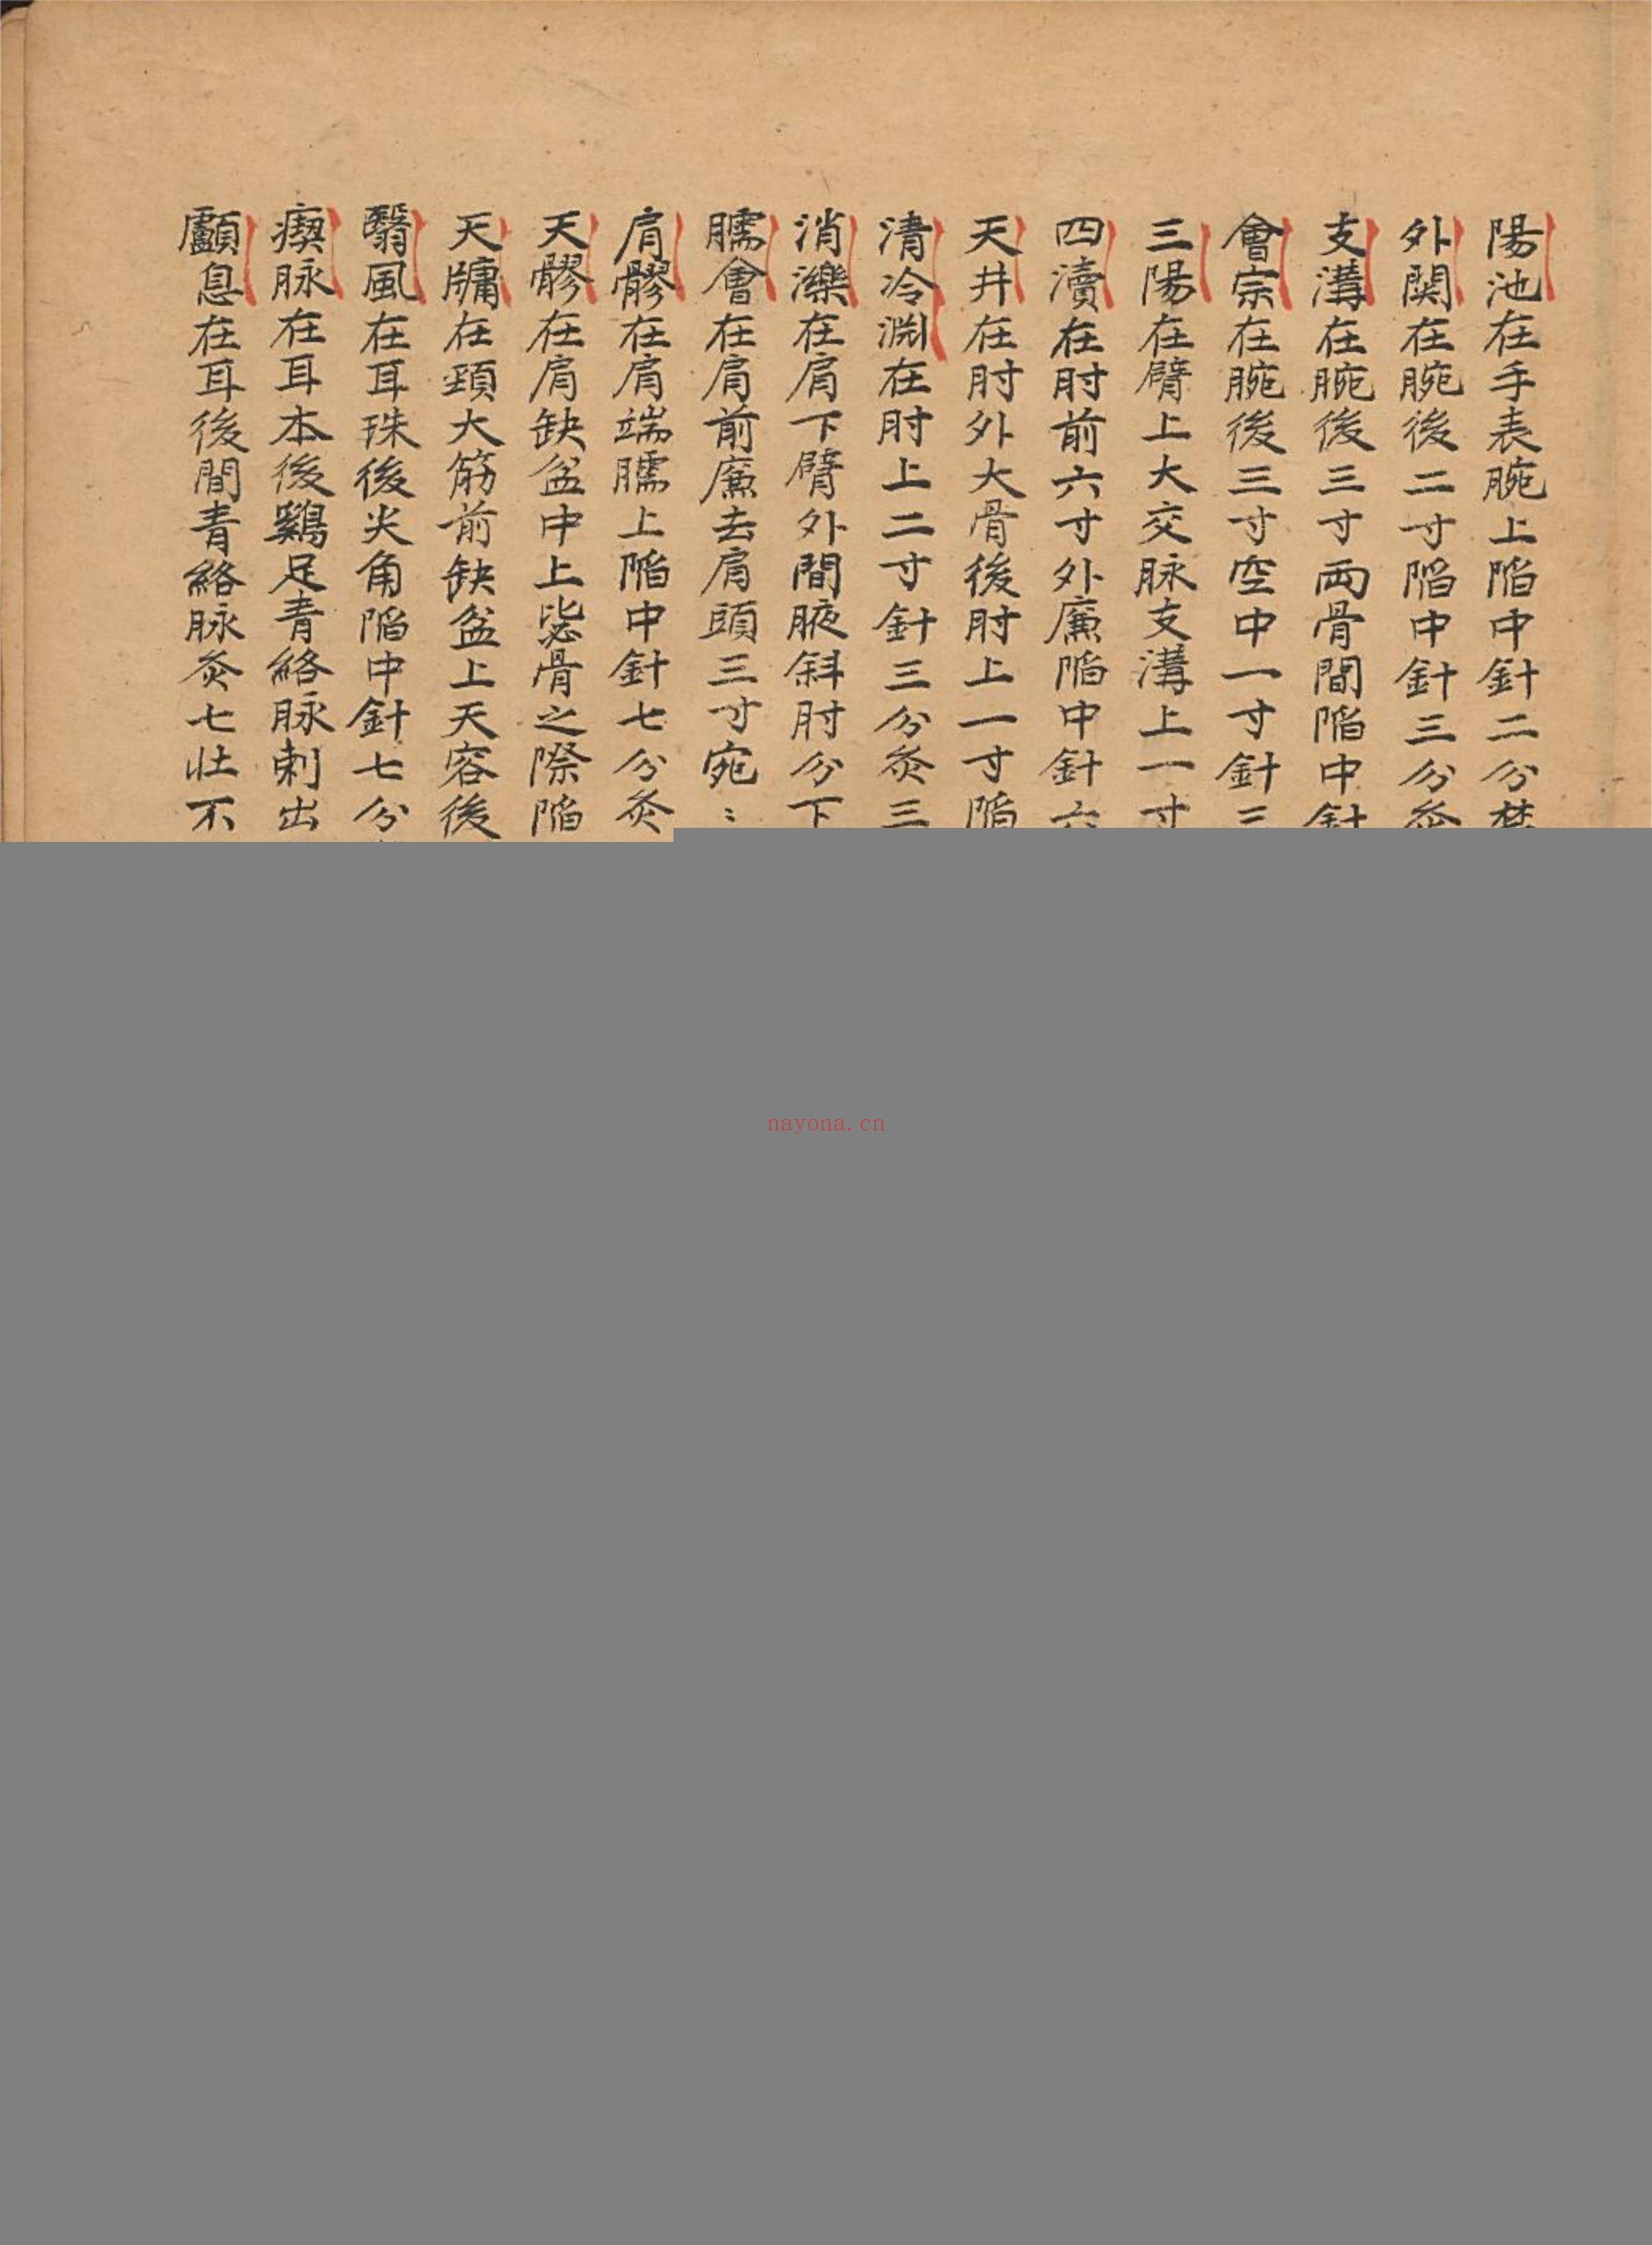 陽池在手表腕上陥中針二分禁
外関在腕後二寸陥中針三分灸
支溝在腕後三寸両骨間陥中針
會宗在腕後三寸空中一寸針三
三陽在臂上大交脉支溝上一寸
四瀆在肘前六寸外廉陥中針六
天井在肘外大骨後肘上一寸陥
清冷渊在肘上二寸針三分灸三
消濼在肩下臂外間腋斜肘分下
臑會在肩前廉去肩頭三寸宛〻
肩髎在肩端臑上陥中針七分灸
天髎在肩缺盆中上毖骨之際陥
天牗在頚大筋前缺盆上天容後
翳風在耳珠後尖角陥中針七分
瘈脉在耳本後鷄足青絡脉刺出
顱息在耳後間青絡脉灸七壮不
nayona.cn